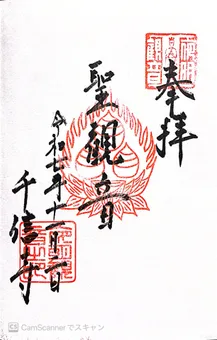 奉拝
聖観音
令和七年十一月一日
千信寺
CamScannerでスキャン